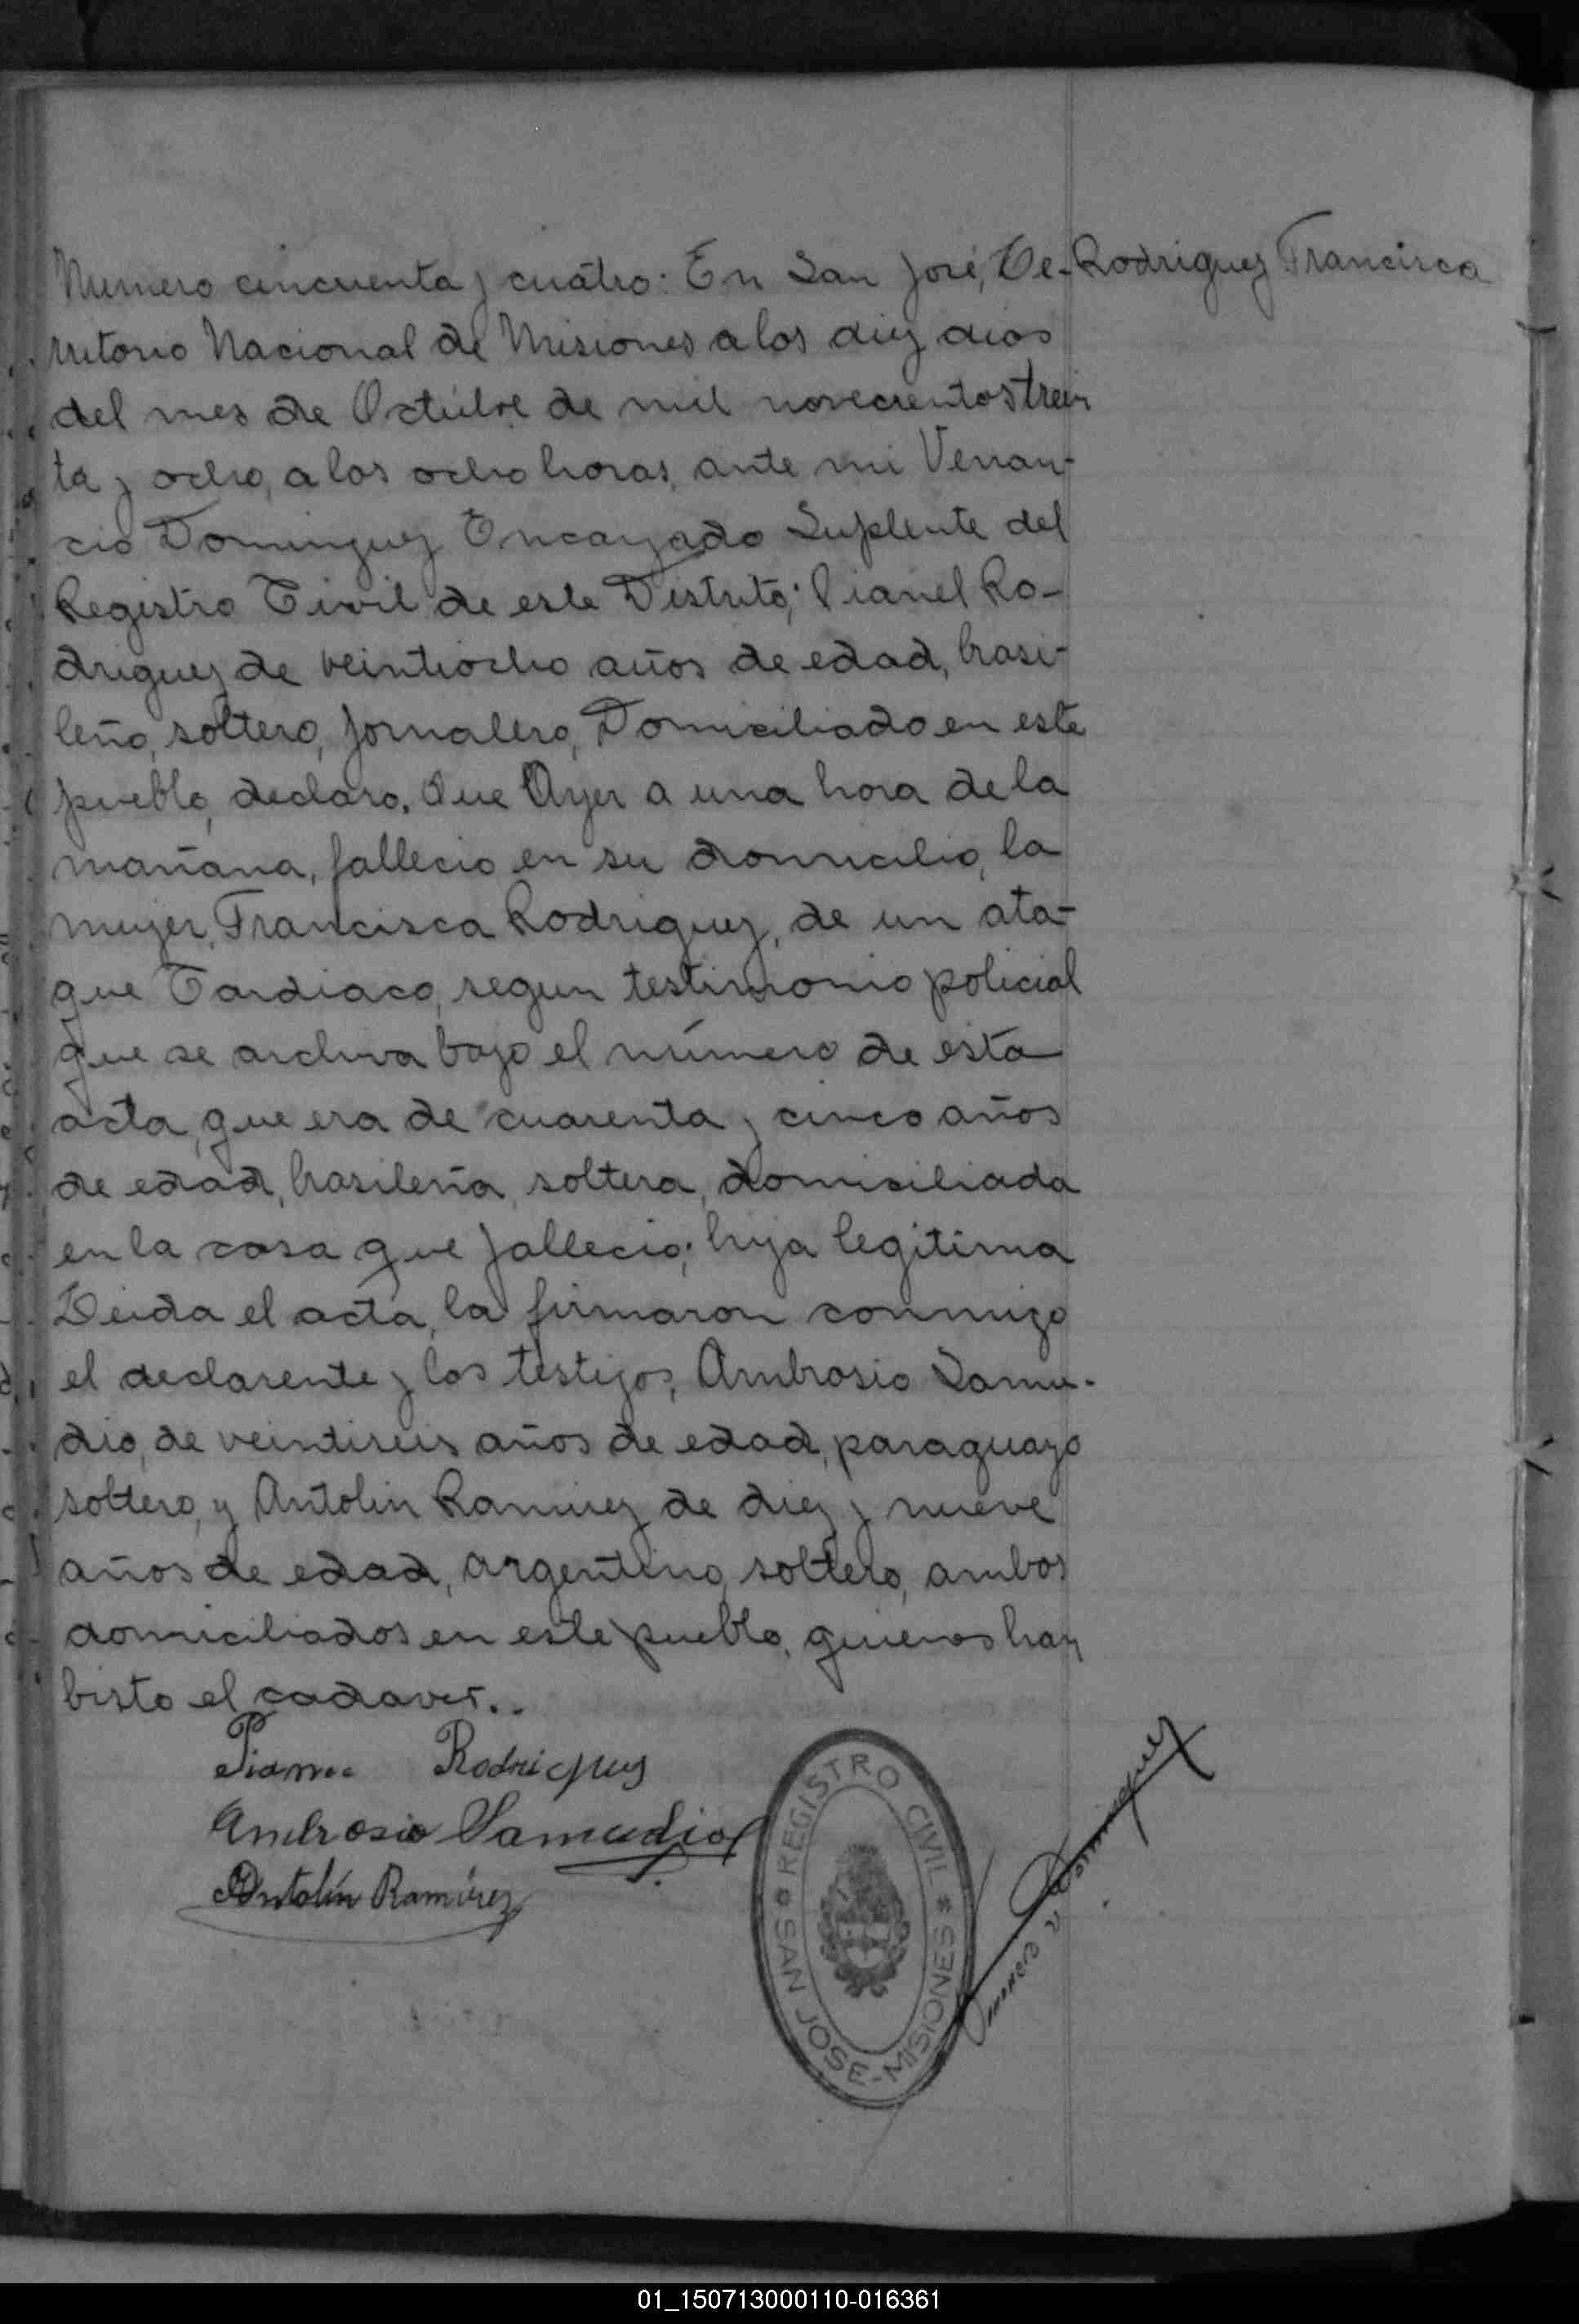 Numero cincuenta y cuatro: En San José, Te-
Rodriguez Francisca
rritorio Nacional de Misiones a los diez dias
del mes de Octubre de mil novecientos trein
ta y ocho, a las ocho horas, ante mi Venan-
cio Dominguez Encargado Suplente del
Registro Civil de este Distrito; Pianel Ro-
driguez de veintiocho años de edad, brasi-
leño, soltero, jornalero, Domiciliado en este
pueblo, declaro. Que Ayer a una hora de la
mañana, fallecio en su domicilio, la
mujer, Francisca Rodriguez, de un ata-
que Cardiaco, segun testimonio policial
que se archiva bajo el número de esta
acta, que era de cuarenta y cinco años
de edad, brasileña, soltera, domisiliada
en la casa que fallecio; hija legitima
Leida el acta, la firmaron conmigo
el declarente y los testigos, Ambrosio Samu-
dio, de veintiseis años de edad, paraguayo
soltero, y Antolin Ramirez de diez y nueve
años de edad, argentino, soltero, ambos
domiciliados en este pueblo, quienes han
bisto el cadaver..
Rodriguez
Ambrosio Samudio
Antolín Ramírez
Venancio Dominguez
REGISTRO CIVIL
SAN JOSE - MISIONES
01_150713000110-016361